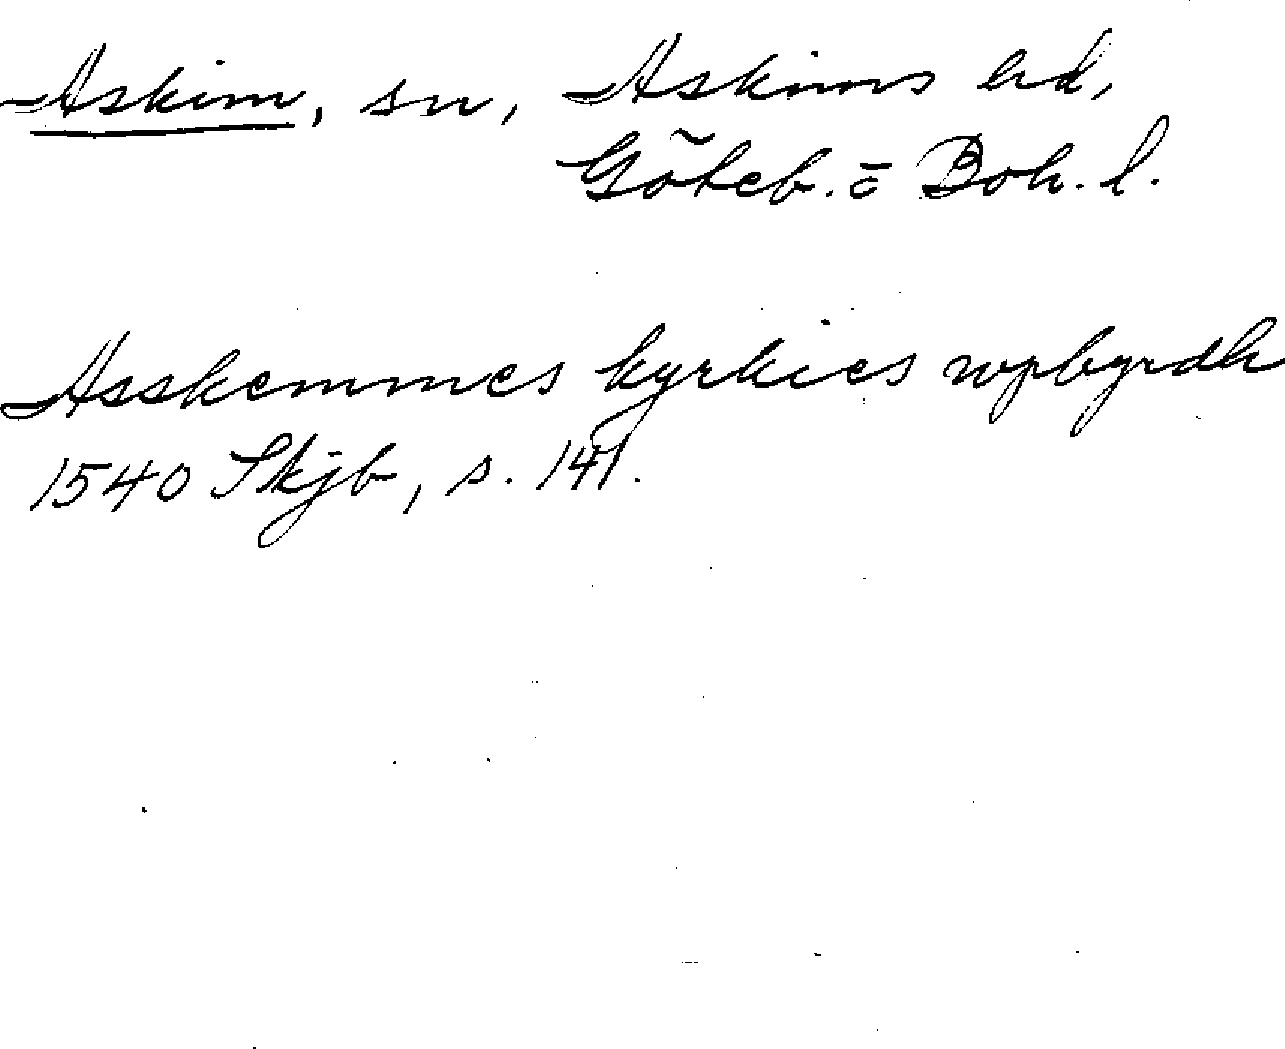 Askim, sn, Askims hd,
Göteb. o Boh. l.
Asskemmes kyrkies wpbyrdh
1540 Skjb, s. 141.